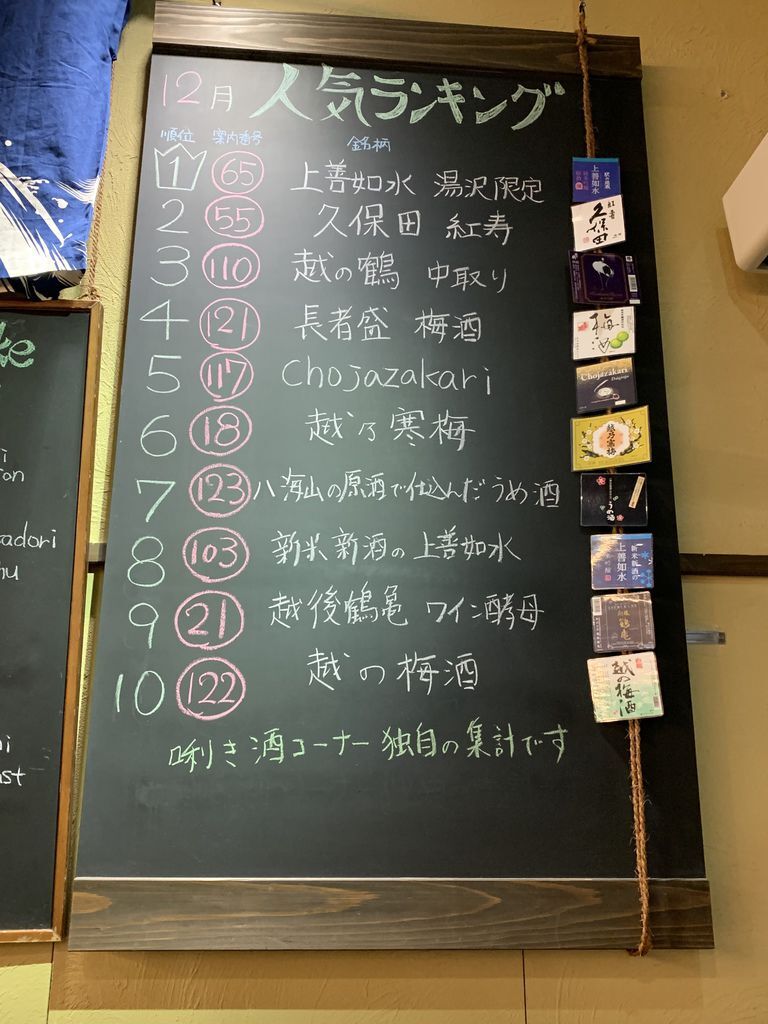 12月 人気ランキング
順位 案内番号 銘柄
1 65 上善如水 湯沢限定
2 55 久保田 紅寿
3 110 越の鶴 中取り
4 121 長者盛 梅酒
5 117 Chojazakari
6 18 越乃寒梅
7 123 八海山の原酒で仕込んだうめ酒
8 103 新米新酒の上善如水
9 21 越後鶴亀 ワイン酵母
10 122 越の梅酒
唎き酒コーナー独自の集計です
上善如水
久保田
紅寿
梅酒
Chojazakari
越乃寒梅
うめ酒
新米新酒の
上善如水
鶴亀
越の梅酒
ke
i
ion
adori
hu
i
st